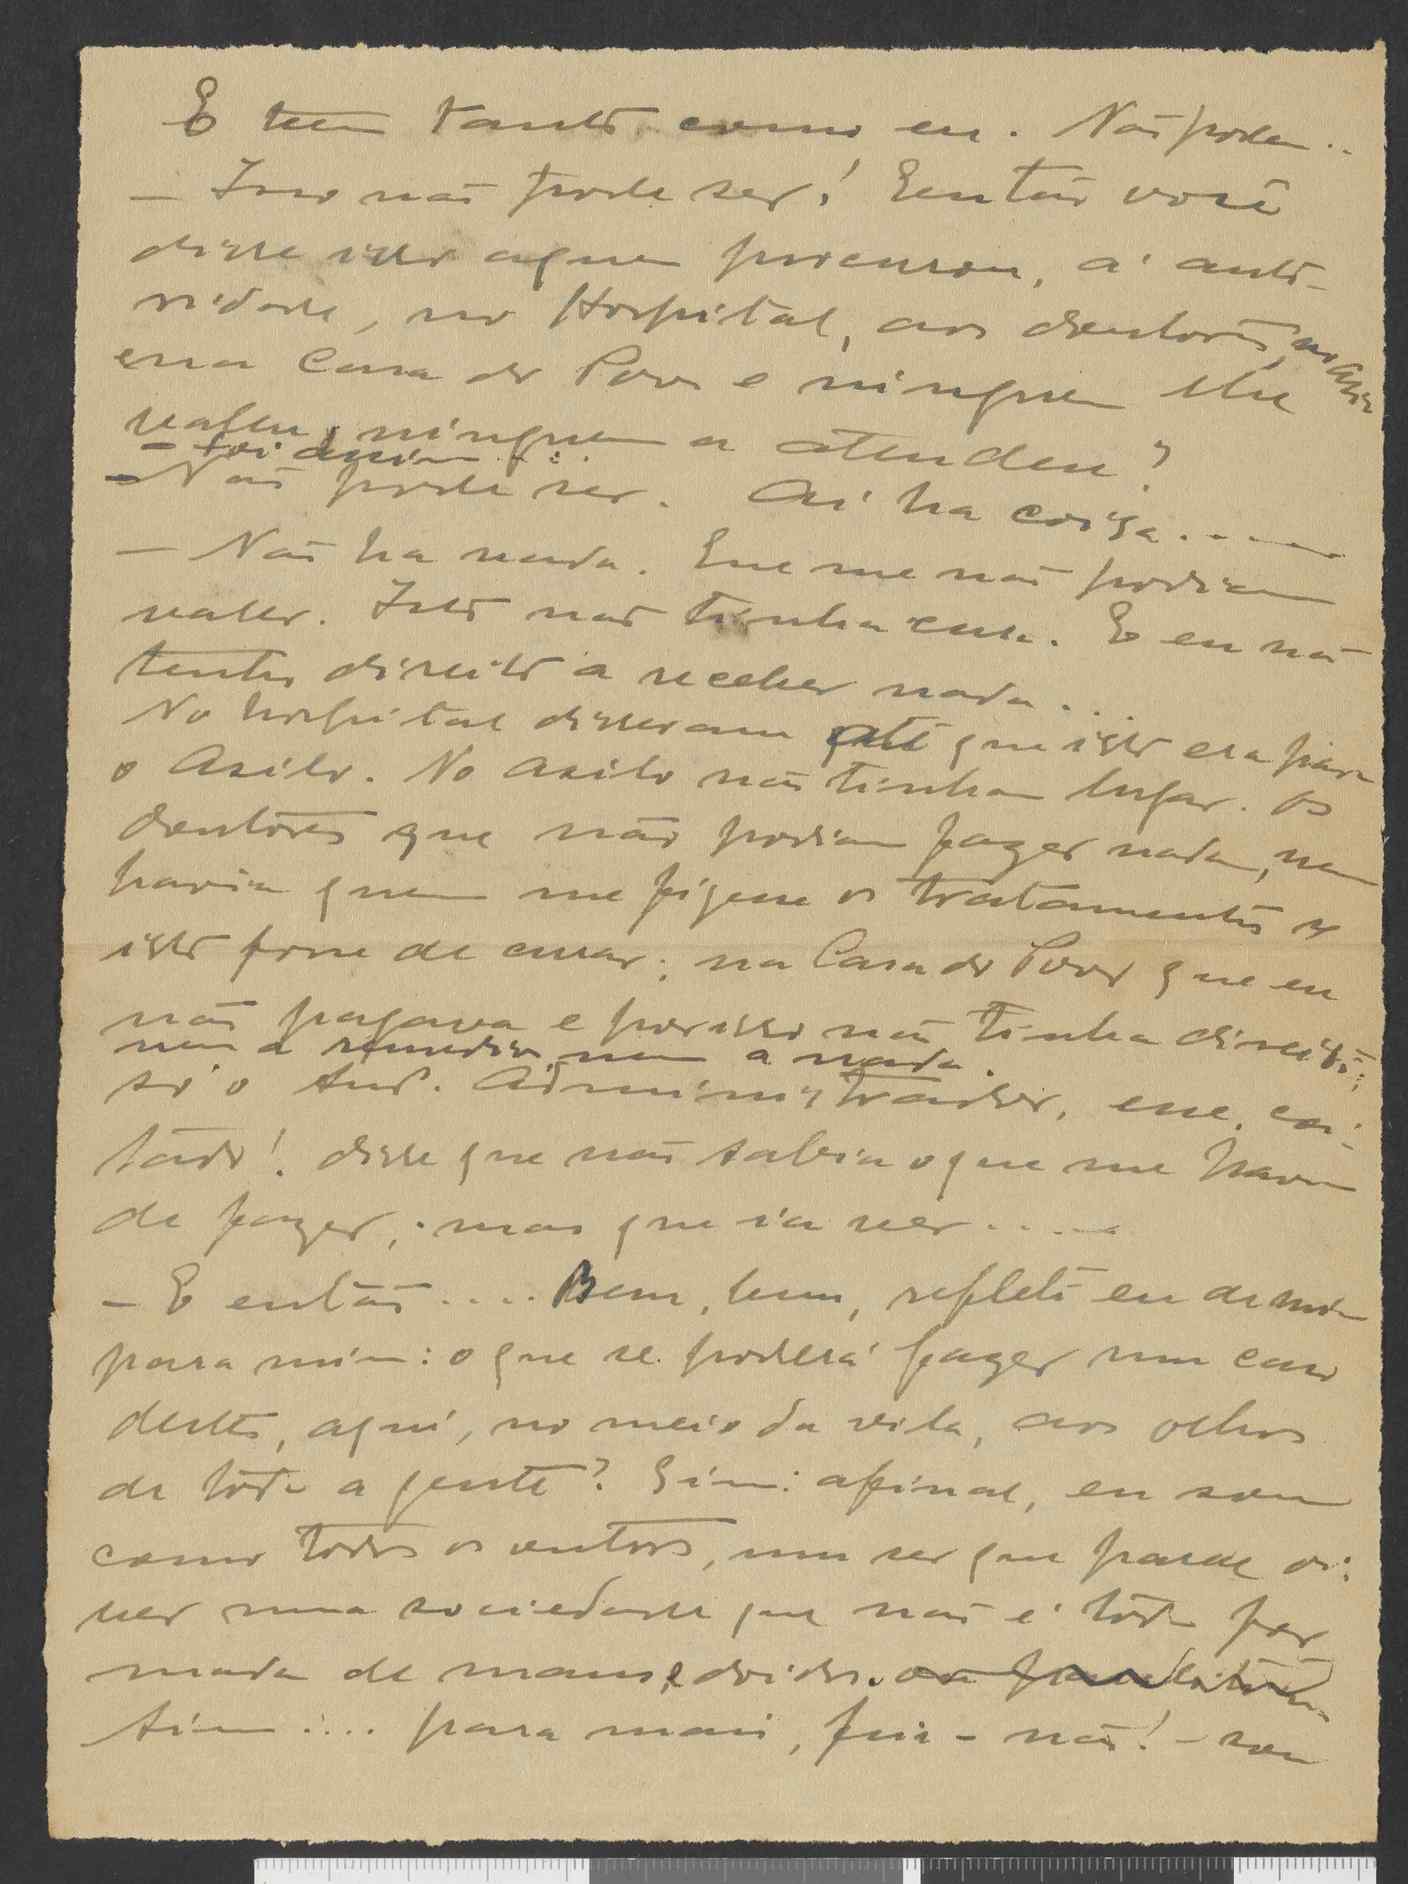 E teem tanto como eu. Não podem..
— Isso não pode ser! Então você
disse isso a quem procurou, á auto-
ridade, no Hospital, aos doutores, no Asilo
e na Casa do Povo e ninguem lhe
valeu, ninguem a atendeu?
— Foi assim...
— Não pode ser. Aí ha coisa.....
— Não ha nada. Que me não podiam
valer. Isto não tinha cura. E eu não
tenho direito a receber nada...
No hospital disseram até que isso era para
o Asilo. No Asilo não tinham lugar. Os
doutores que não podiam fazer nada, nem
havia quem me fizesse os tratamentos se
isto fosse de curar; na Casa do Povo que eu
não pagava e por isso não tinha direito,
nem a remedios nem a nada.
só o Snr. Administrador, esse, coi-
tado! disse que não sabia o que me havia
de fazer; mas que ia ver.....
— E então.... Bem, bem, refleti eu de mim
para mim: o que se poderá fazer num caso
destes, aqui, no meio da vila, aos olhos
de tôda a gente? Sim: afinal, eu sou
como todos os outros, um ser que parece vi-
ver numa sociedade que não é tôda for
mada de maus e doidos.
Sim.... para mais, fui - não! - sou